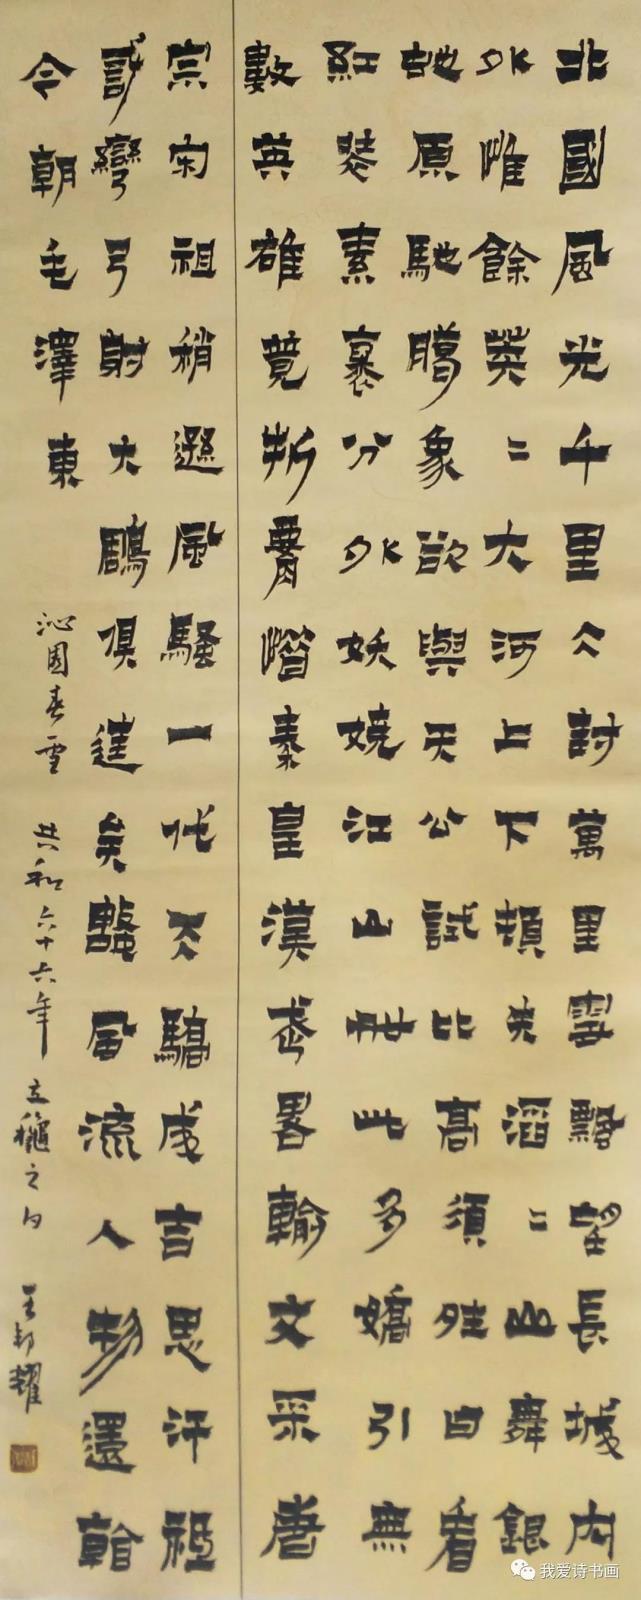 北國風光千里仌封萬里雪飄望長城內
外惟餘莽二大河上下頓失滔二山舞銀
蛇原馳臘象欲與天公試比高須晴日看
紅裝素裹分外妖嬈江山如此多嬌引無
數英雄競折腰惜秦皇漢武畧輸文采唐
宗宋祖稍遜風騷一代天驕成吉思汗祗
識彎弓射大鵰俱往矣數風流人物還看
今朝毛澤東
沁園春雪 共和六十六年立穐之日 王邦耀
我爱诗书画